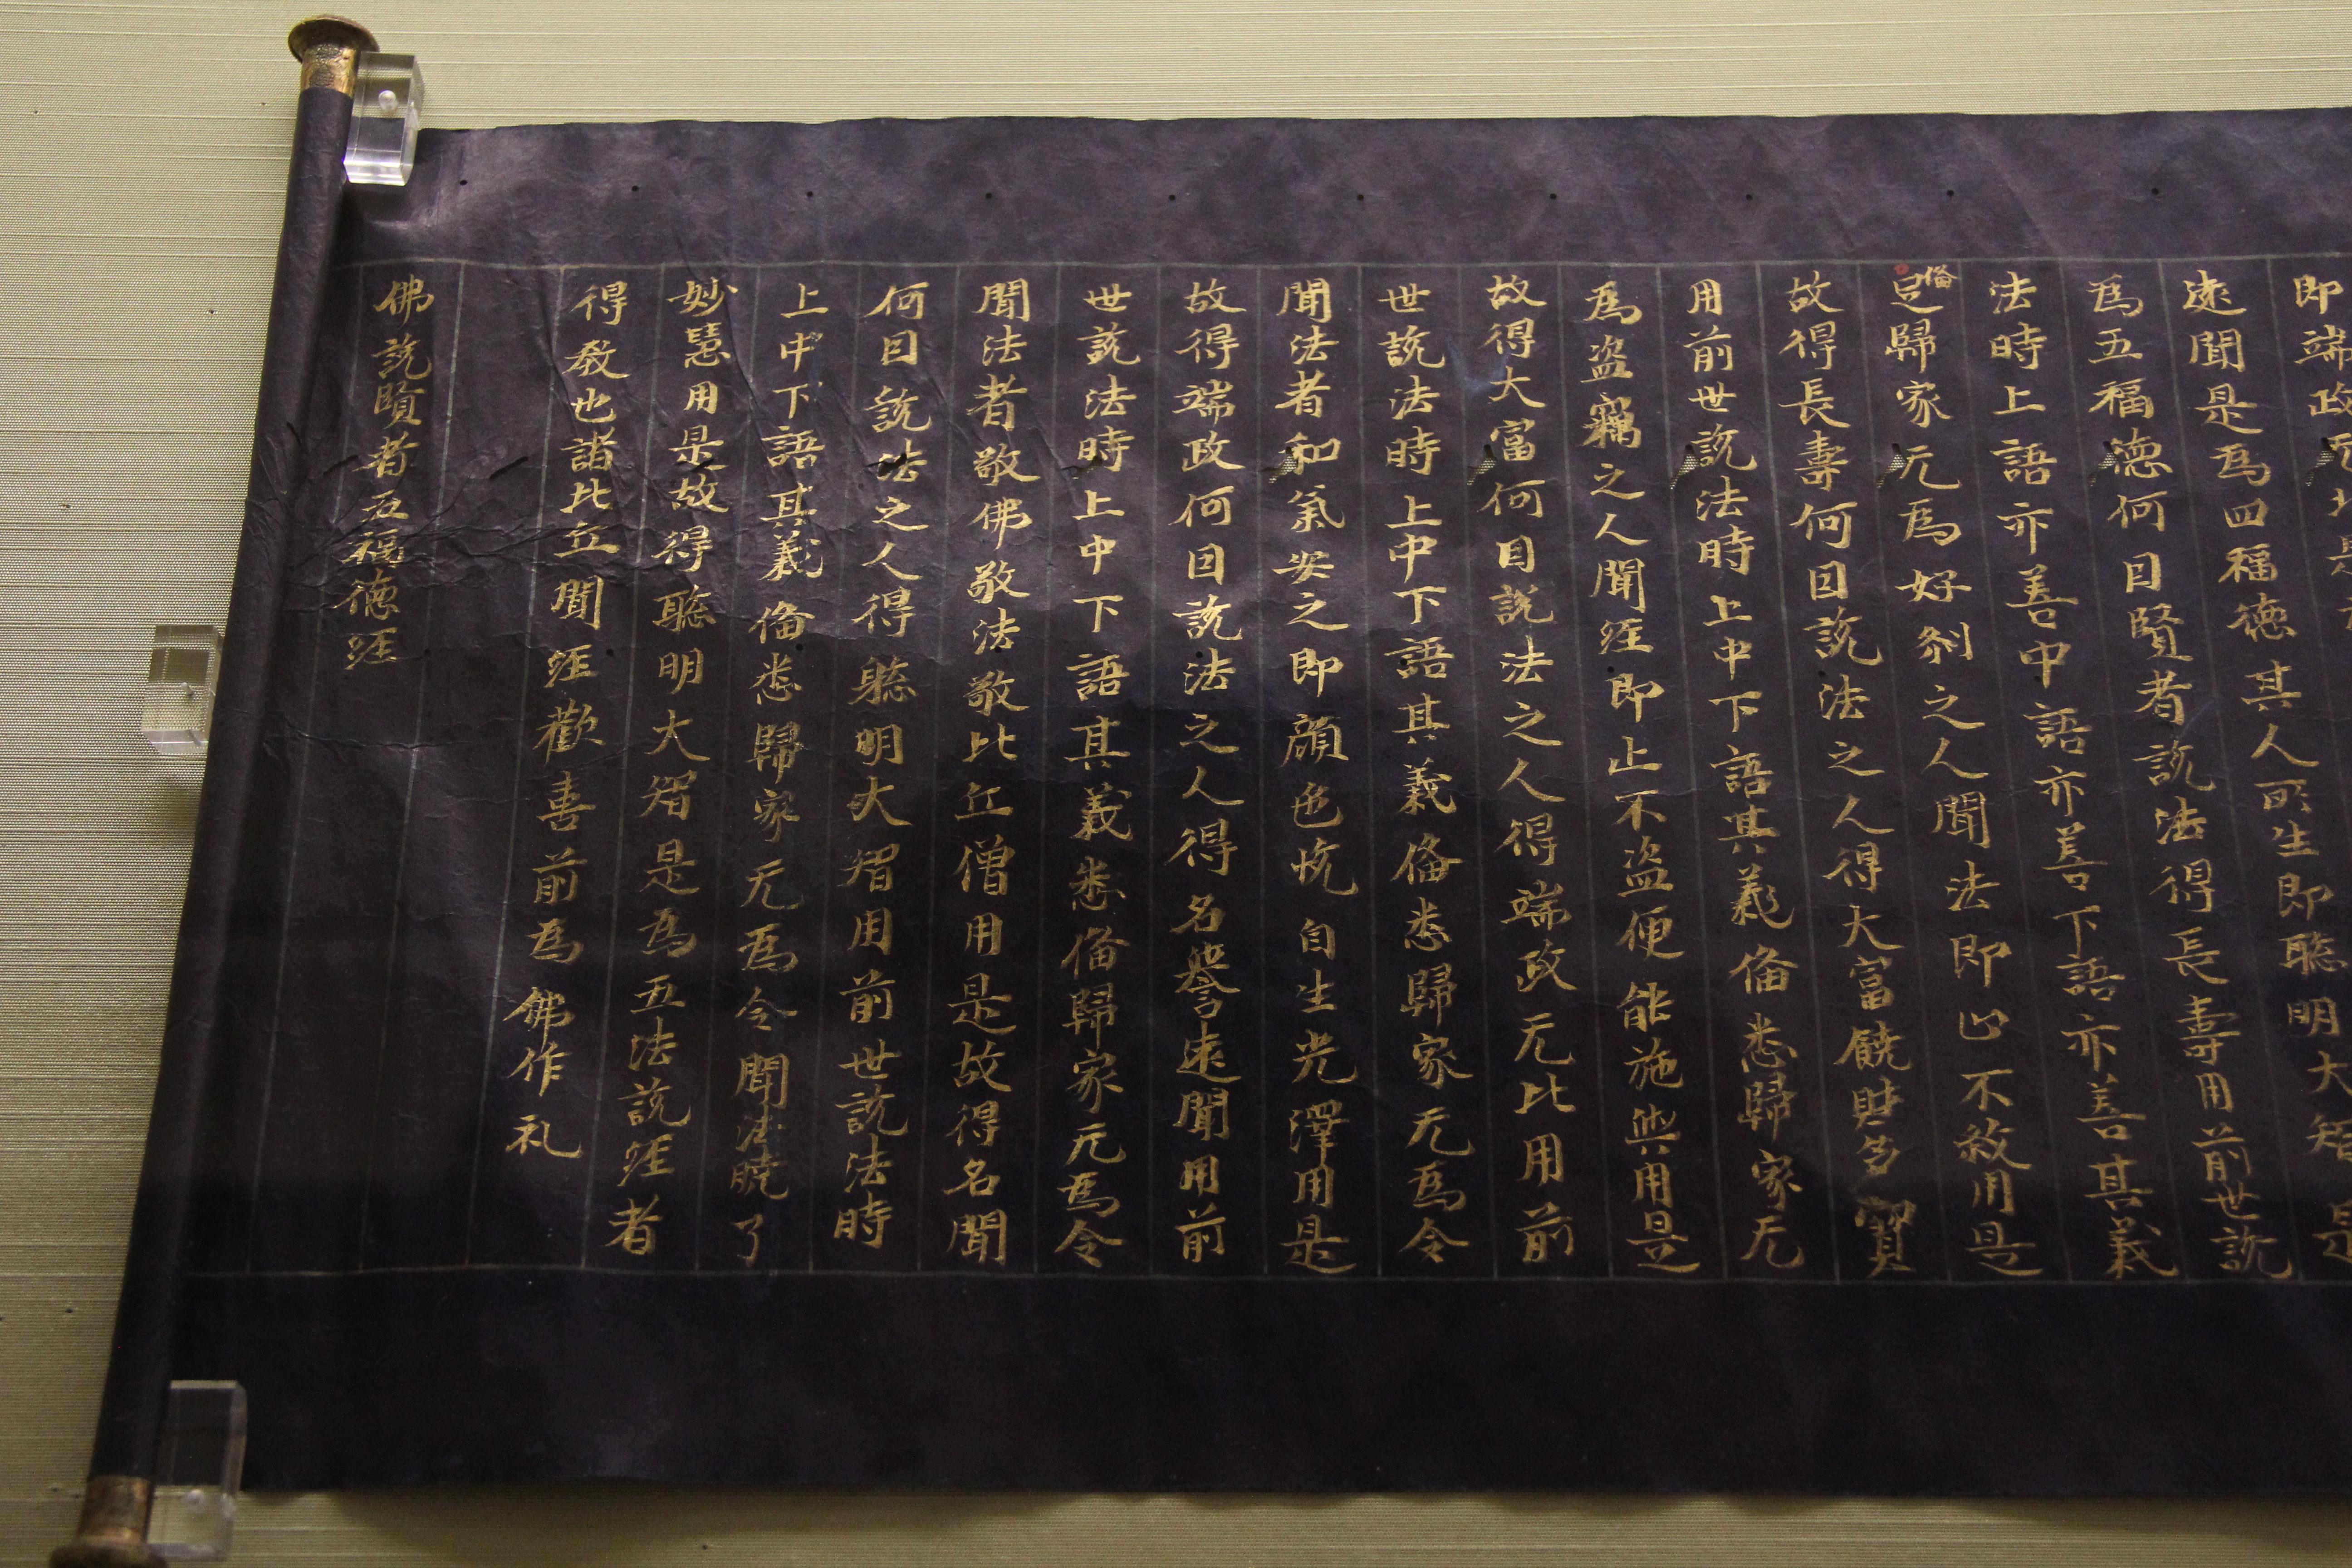 即端政
遠聞是為四福德其人所生即聰明大智是
為五福德何因賢者說法得長壽用前世說
法時上語亦善中語亦善下語亦善其義
備
歸家无為好煞之人聞法即止不煞用是
故得長壽何因說法之人得大富饒財多寶
用前世說法時上中下語其義俻悉歸家无
為盜竊之人聞經即止不盜便能施與用是
故得大富何因說法之人得端政无比用前
世說法時上中下語其義俻悉歸家无為令
聞法者和氣安之即顏色恱自生光澤用是
故得端政何因說法之人得名譽遠聞用前
世說法時上中下語其義悉俻歸家无為令
聞法者敬佛敬法敬比丘僧用是故得名聞
何因說法之人得聰明大智用前世說法時
上中下語其義俻悉歸家无為令聞法曉了
妙慧用是故得聰明大智是為五法說經者
得教也諸比丘聞經歡喜前為佛作礼
佛說賢者五福德經